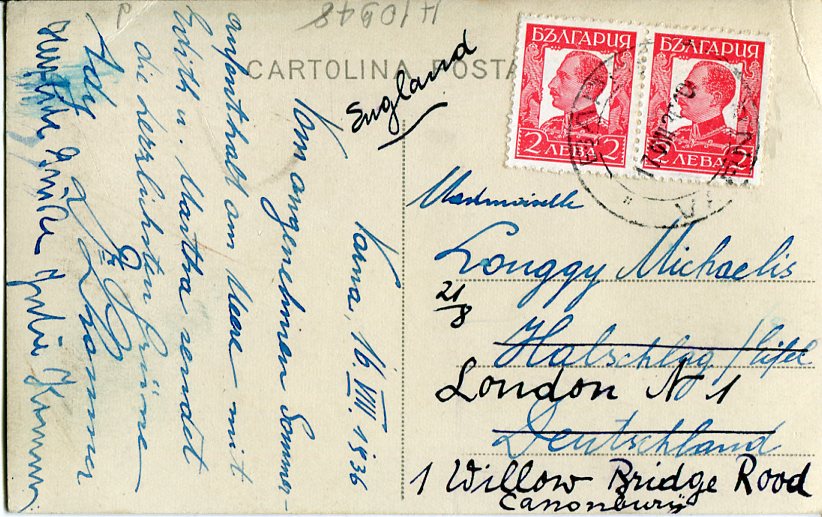 H 10548
CARTOLINA POSTA
England
БЪЛГАРИЯ
2 ЛЕВА 2
БЪЛГАРИЯ
2 ЛЕВА 2
Varna, 16. VIII. 1936
Vom angenehmen Sommer-
aufenthalt am Meere mit
Edith u. Martha sendet
die herzlichsten Grüsse
Ady
Herzliche Grüße
Mademoiselle
Longgy Michaelis
21/8
Halschlag / Eifel
London N 1
Deutschland
1 Willow Bridge Rood
Canonbury